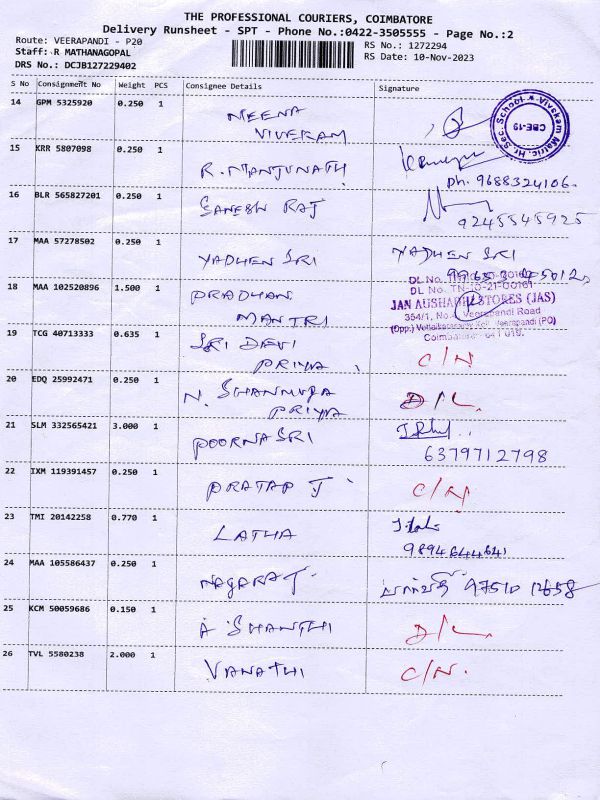 THE PROFESSIONAL COURIERS, COIMBATORE
Delivery Runsheet - SPT - Phone No.:0422-3505555 - Page No.:2
Route: VEERAPANDI - P20
Staff: R MATHANAGOPAL
DRS No.: DCJB127229402
RS No.: 1272294
RS Date: 10-Nov-2023
S No Consignment No Weight PCS Consignee Details Signature
14 GPM 5325920 0.250 1 MEENA
VIVEKAM
Vivekam Matric. Hr. Sec. School
CBE-19
15 KRR 5807098 0.250 1 R. MANJUNATH
Ph. 9688324106.
16 BLR 565827201 0.250 1 GANESH RAJ
9245545925
17 MAA 57278502 0.250 1 YADHEN SRI YADHEN SRI
18 MAA 102520896 1.500 1 PRADHAN
MANTRI
DL No.
DL No. TN-
JAN AUSHADHI STORES (JAS)
354/1, No. Veerapandi Road
(Opp.) Veerapandi (PO)
Coimbatore - 641 019.
19 TCG 40713333 0.635 1 SRI DEVI
PRIYA C/N
20 EDQ 25992471 0.250 1 N. SHANMUGA
PRIYA D/L
21 SLM 332565421 3.000 1 POORNA SRI
6379712798
22 IXM 119391457 0.250 1 PRATAP J C/N
23 TMI 20142258 0.770 1 LATHA
9894644641
24 MAA 105586437 0.250 1 NAGARAJ 97510 12658
25 KCM 50059686 0.150 1 A SHANTHI D/L
26 TVL 5580238 2.000 1 VANATHI C/N.